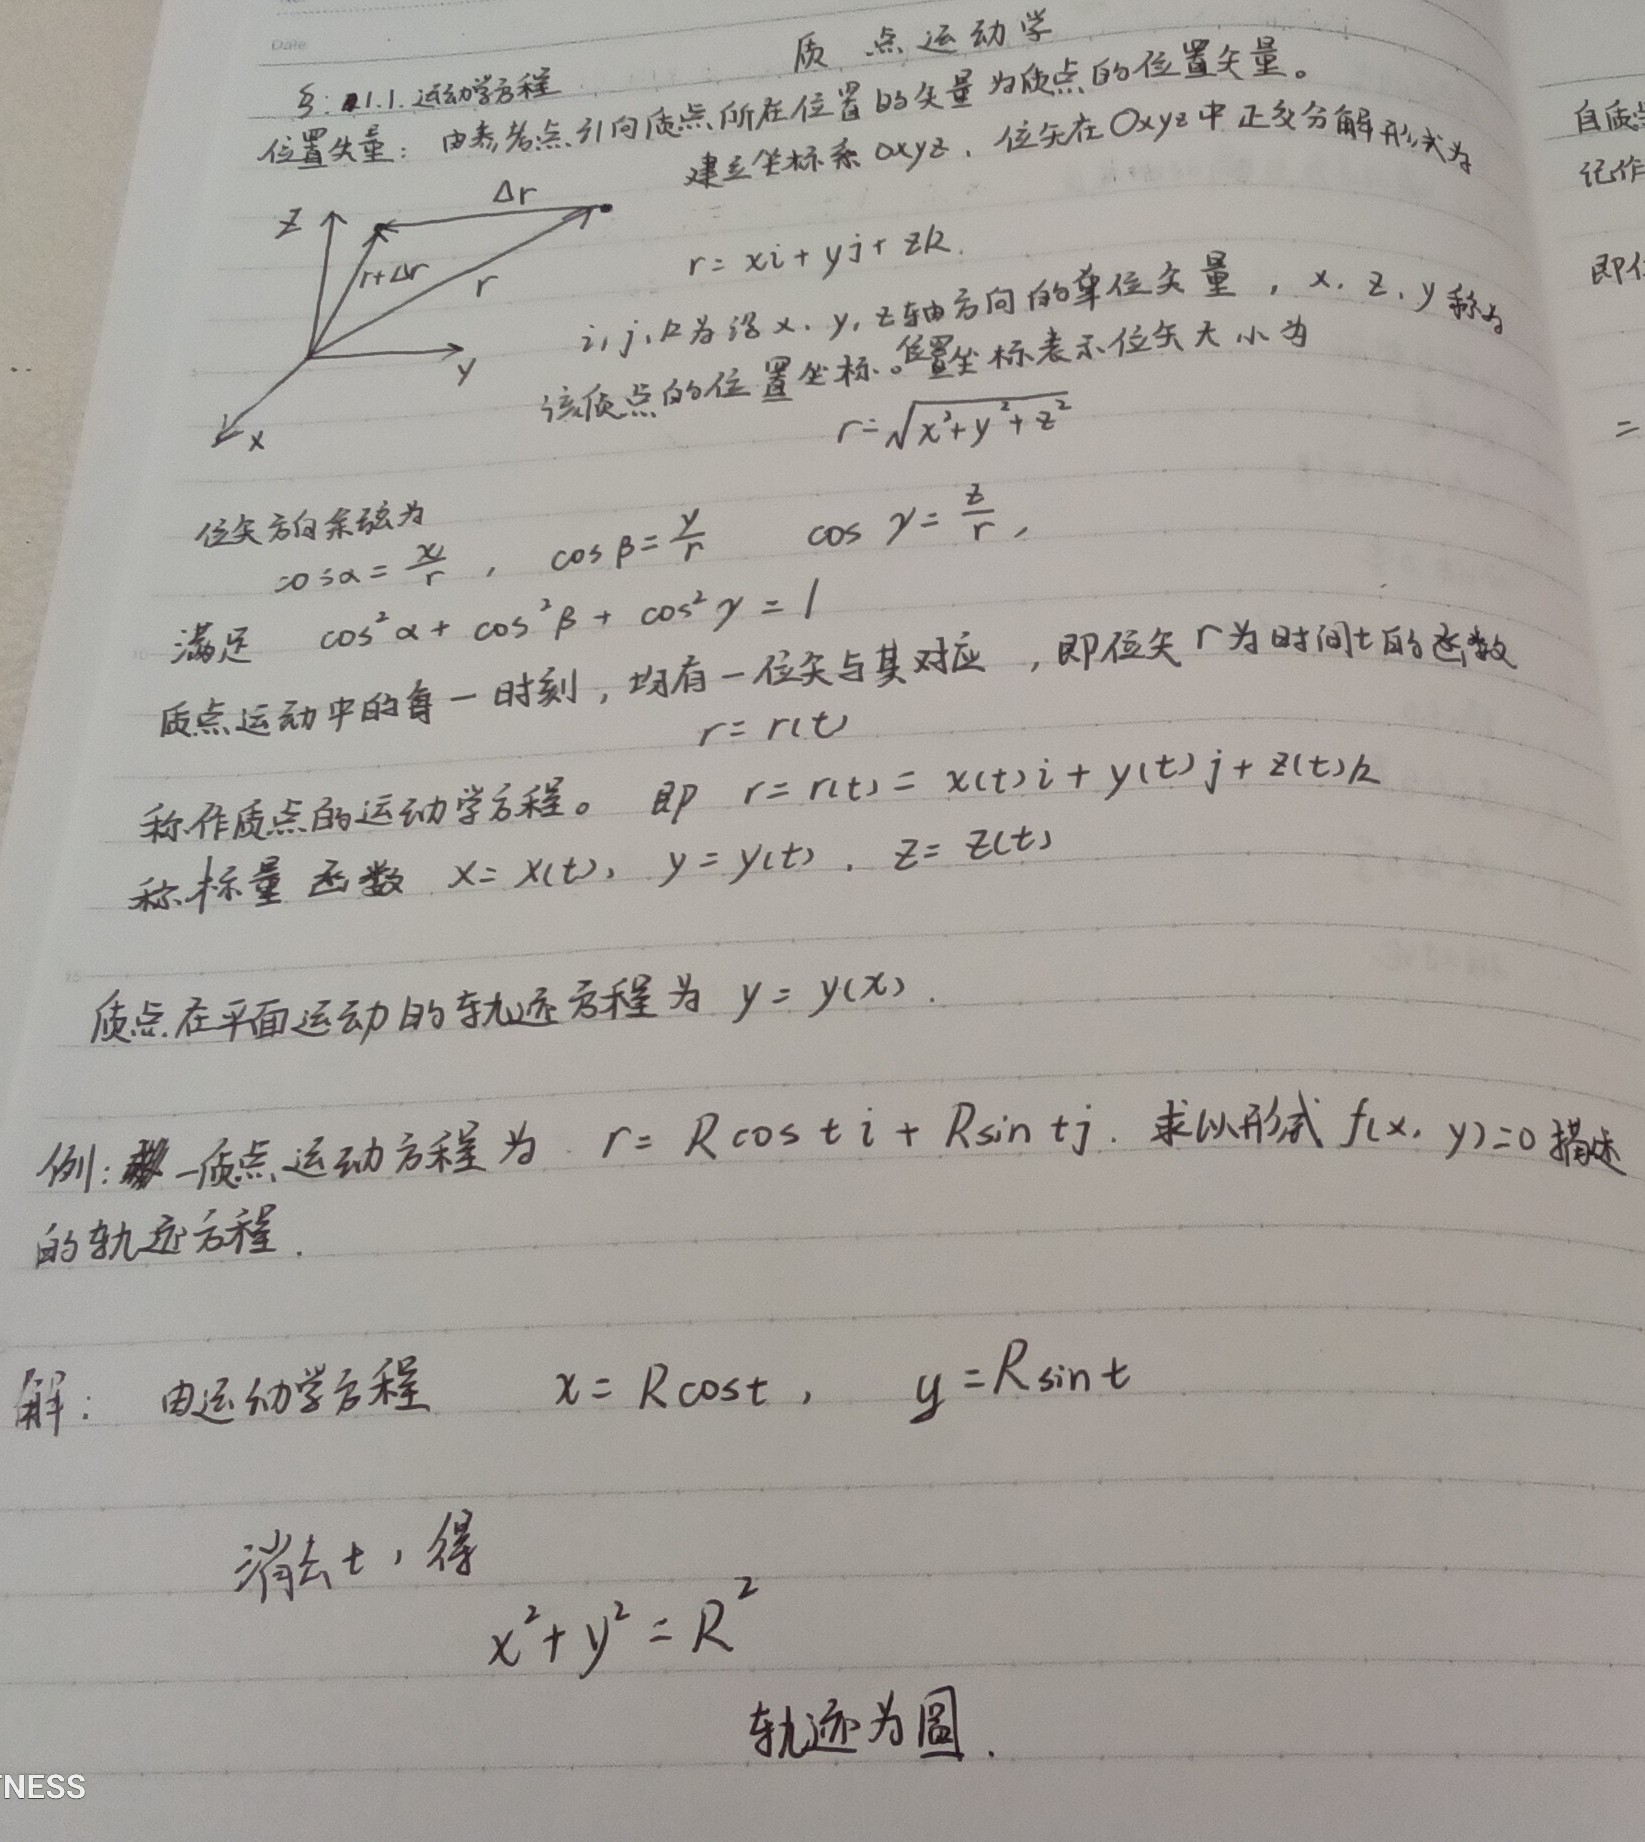 Date
质点运动学
§:1.1.运动学方程
位置矢量：由参考点引向质点所在位置的矢量为质点的位置矢量。
建立坐标系oxyz，位矢在Oxyz中正交分解形式为
Δr
z
r+Δr
r
y
x
r=xi+yj+zk.
i,j,k为沿x.y,z轴方向的单位矢量，x.z.y称为
该质点的位置坐标。位置坐标表示位矢大小为
r=√x²+y²+z²
位矢方向余弦为
cosα=x/r, cosβ=y/r cosγ=z/r,
满足 cos²α+cos²β+cos²γ=1
质点运动中的每一时刻，均有一位矢与其对应，即位矢r为时间t的函数
r=r(t)
称作质点的运动学方程。即 r=r(t)=x(t)i+y(t)j+z(t)k
称标量函数 x=x(t), y=y(t), z=z(t)
质点在平面运动的轨迹方程为 y=y(x).
例: 一质点运动方程为 r=Rcosti+Rsintj. 求以形式f(x,y)=0描述
的轨迹方程.
解: 由运动学方程 x=Rcost, y=Rsint
消去t，得
x²+y²=R²
轨迹为圆.
自质
记作
即位
=
TNESS